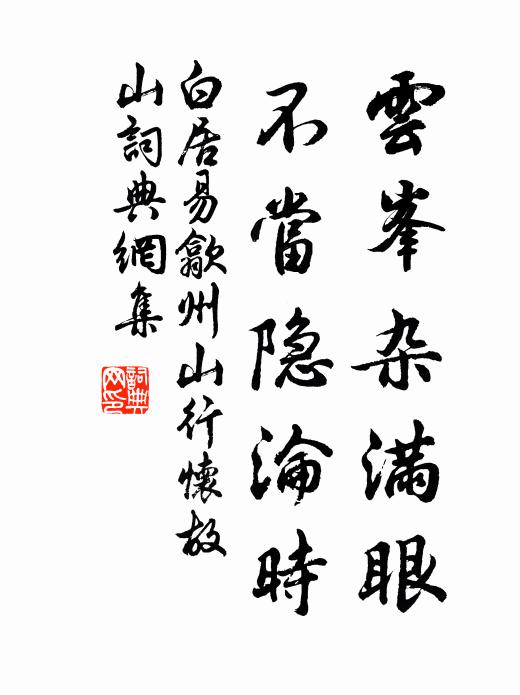 雲峯杂滿眼
不當隐淪時
白居易歙州山行懷故
山詞典網集
詞典
网印